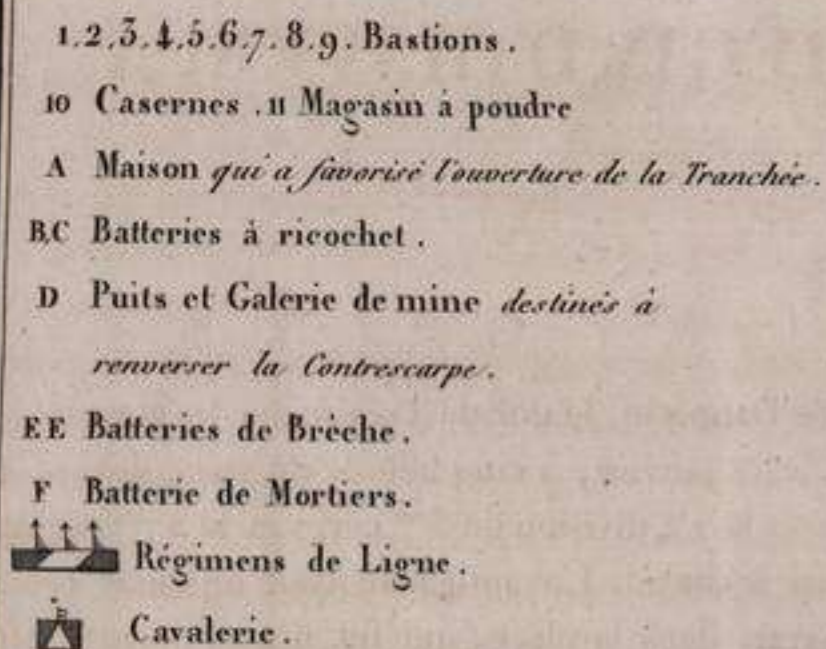 1.2.3.4.5.6.7.8.9. Bastions.
10 Casernes. 11 Magasin à poudre
A Maison qui a favorisé l'ouverture de la Tranchée.
B,C Batteries à ricochet.
D Puits et Galerie de mine destinés à
renverser la Contrescarpe.
E E Batteries de Brèche.
F Batterie de Mortiers.
Régimens de Ligne.
Cavalerie.